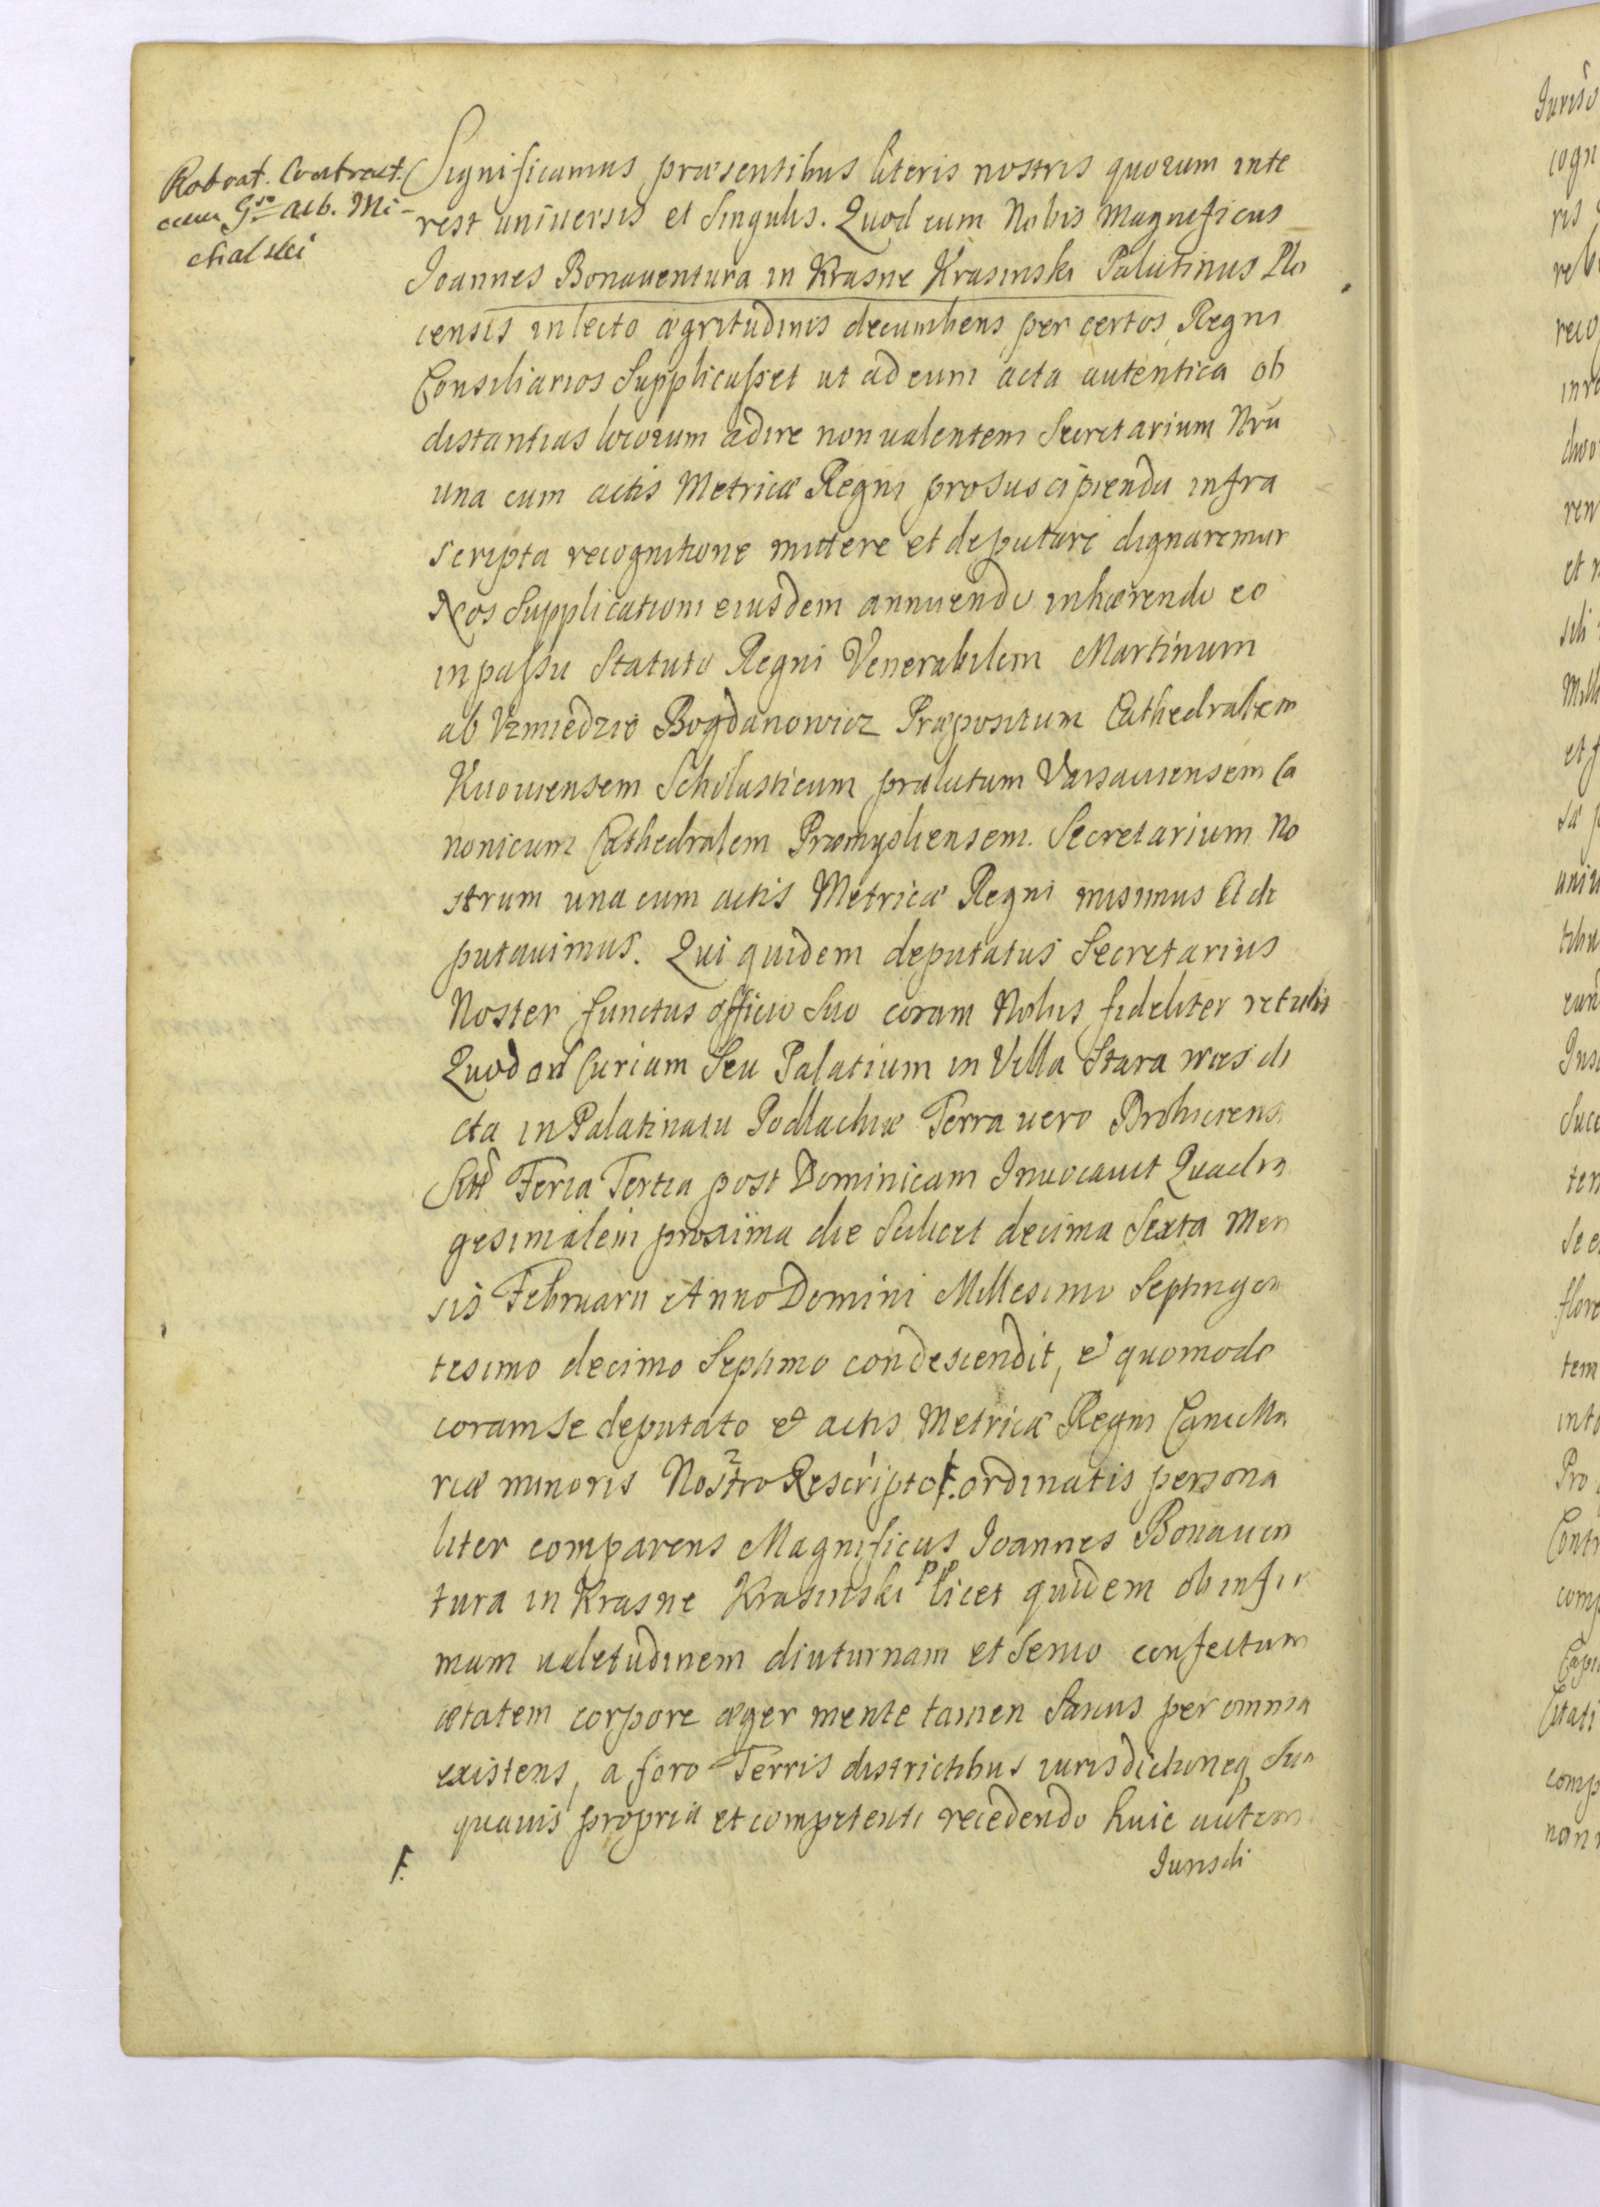 Roborat. Contract.
cum Gso Alb. Mi-
chalski
Significamus præsentibus literis nostris quorum inte
rest uniuersis et Singulis. Quod cum Nobis Magnificus
Joannes Bonauentura in Krasne Krasinski Palatinus Plo
censis in lecto ægritudinis decumbens per certos Regni
Consiliarios Supplicasset ut ad eum acta autentica ob
distantias locorum adire non ualentem Secretarium Nrũ
una cum actis Metricæ Regni pro suscipienda infra
scripta recognitione mittere et deputare dignaremur
Nos Supplicationi eiusdem annuendo inhærendo eo
in passu Statuto Regni Venerabilem Martinum
ab Uzmiedzie Bogdanowicz Præpositum Cathedralem
Kiiouiensem Scholasticum prælatum Varsauiensem Ca
nonicum Cathedralem Præmysliensem. Secretarium No
strum una cum actis Metricæ Regni misimus et de
putauimus. Qui quidem deputatus Secretarius
Noster functus officio Suo coram Nobis fideliter retulit
Quod ad Curiam Seu Palatium in Villa Stara wies di
cta in Palatinatu Podlachiæ Terra uero Drohicensi
Feria Tertia post Dominicam Inuocauit Quadra
gesimalem proxima die Scilicet decima Sexta Men
sis Februarii Anno Domini Millesimo Septingen
tesimo decimo Septimo condescendit, et quomodo
coram Se deputato et actis Metricæ Regni Cancella
riæ minoris Nostro Rescripto F. ordinatis persona
liter comparens Magnificus Joannes Bonauen
tura in Krasne Krasinski PP licet quidem ob infir
mam ualetudinem diuturnam et Senio confectam
ætatem corpore æger mente tamen Sanus per omnia
existens, a foro Terris districtibus iurisdictioneq Sua
quauis propria et competenti recedendo huic autem
F.
Jurisdi